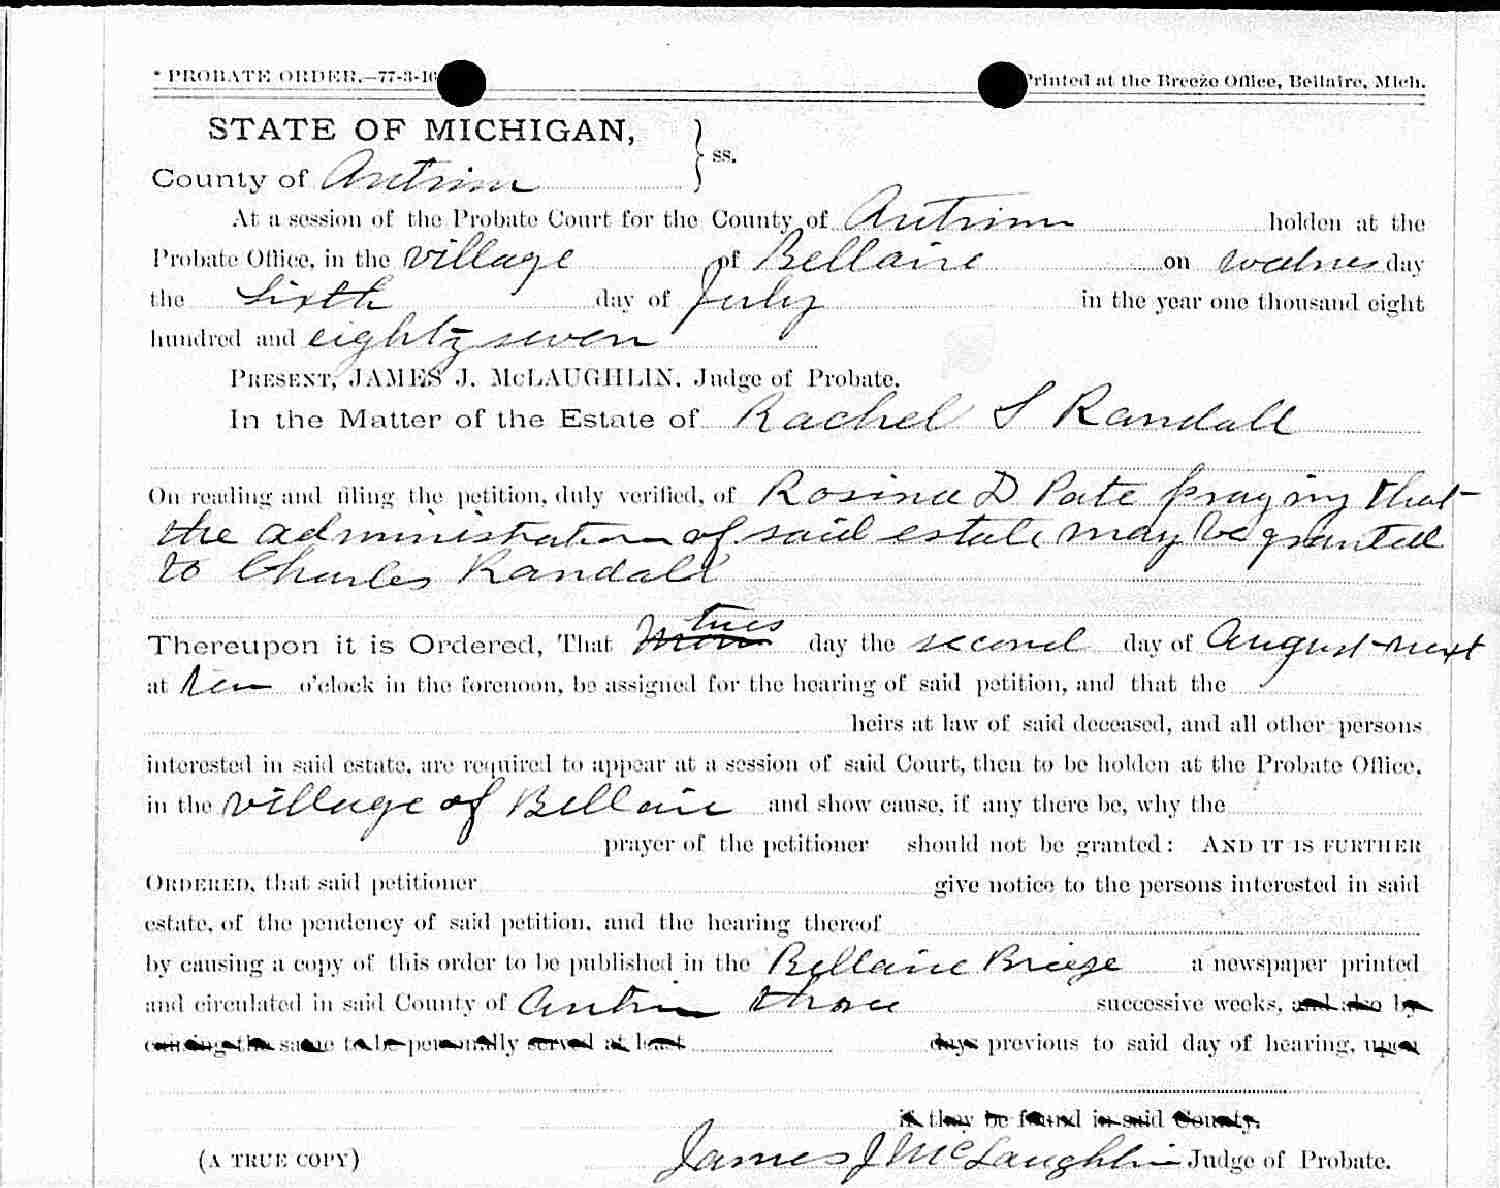 * PROBATE ORDER.—77-3-16 Printed at the Breeze Office, Bellaire, Mich.
STATE OF MICHIGAN,
County of Antrim } ss.
At a session of the Probate Court for the County of Antrim holden at the
Probate Office, in the village of Bellaire on Wednesday
the Sixth day of July in the year one thousand eight
hundred and eighty seven
PRESENT, JAMES J. McLAUGHLIN, Judge of Probate.
In the Matter of the Estate of Rachel S Randall
On reading and filing the petition, duly verified, of Rosina D Pate praying that
the administration of said estate may be granted
to Charles Randall
tues
Thereupon it is Ordered, That Mon day the second day of August next
at ten o'clock in the forenoon, be assigned for the hearing of said petition, and that the
heirs at law of said deceased, and all other persons
interested in said estate, are required to appear at a session of said Court, then to be holden at the Probate Office,
in the village of Bellaire and show cause, if any there be, why the
prayer of the petitioner should not be granted: AND IT IS FURTHER
ORDERED, that said petitioner give notice to the persons interested in said
estate, of the pendency of said petition, and the hearing thereof
by causing a copy of this order to be published in the Bellaire Breeze a newspaper printed
and circulated in said County of Antrim three successive weeks, and also by
causing the same to be personally served at least days previous to said day of hearing, upon
if they be found in said County.
(A TRUE COPY) James J McLaughlin Judge of Probate.